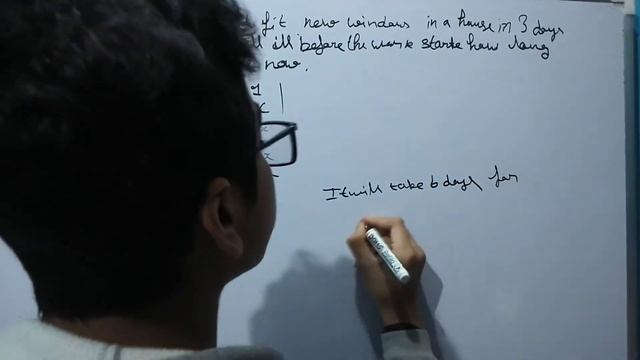 fit new windows in a house in 3 days
ill before the work starts how long
now.
1
x
x
It will take 6 days for